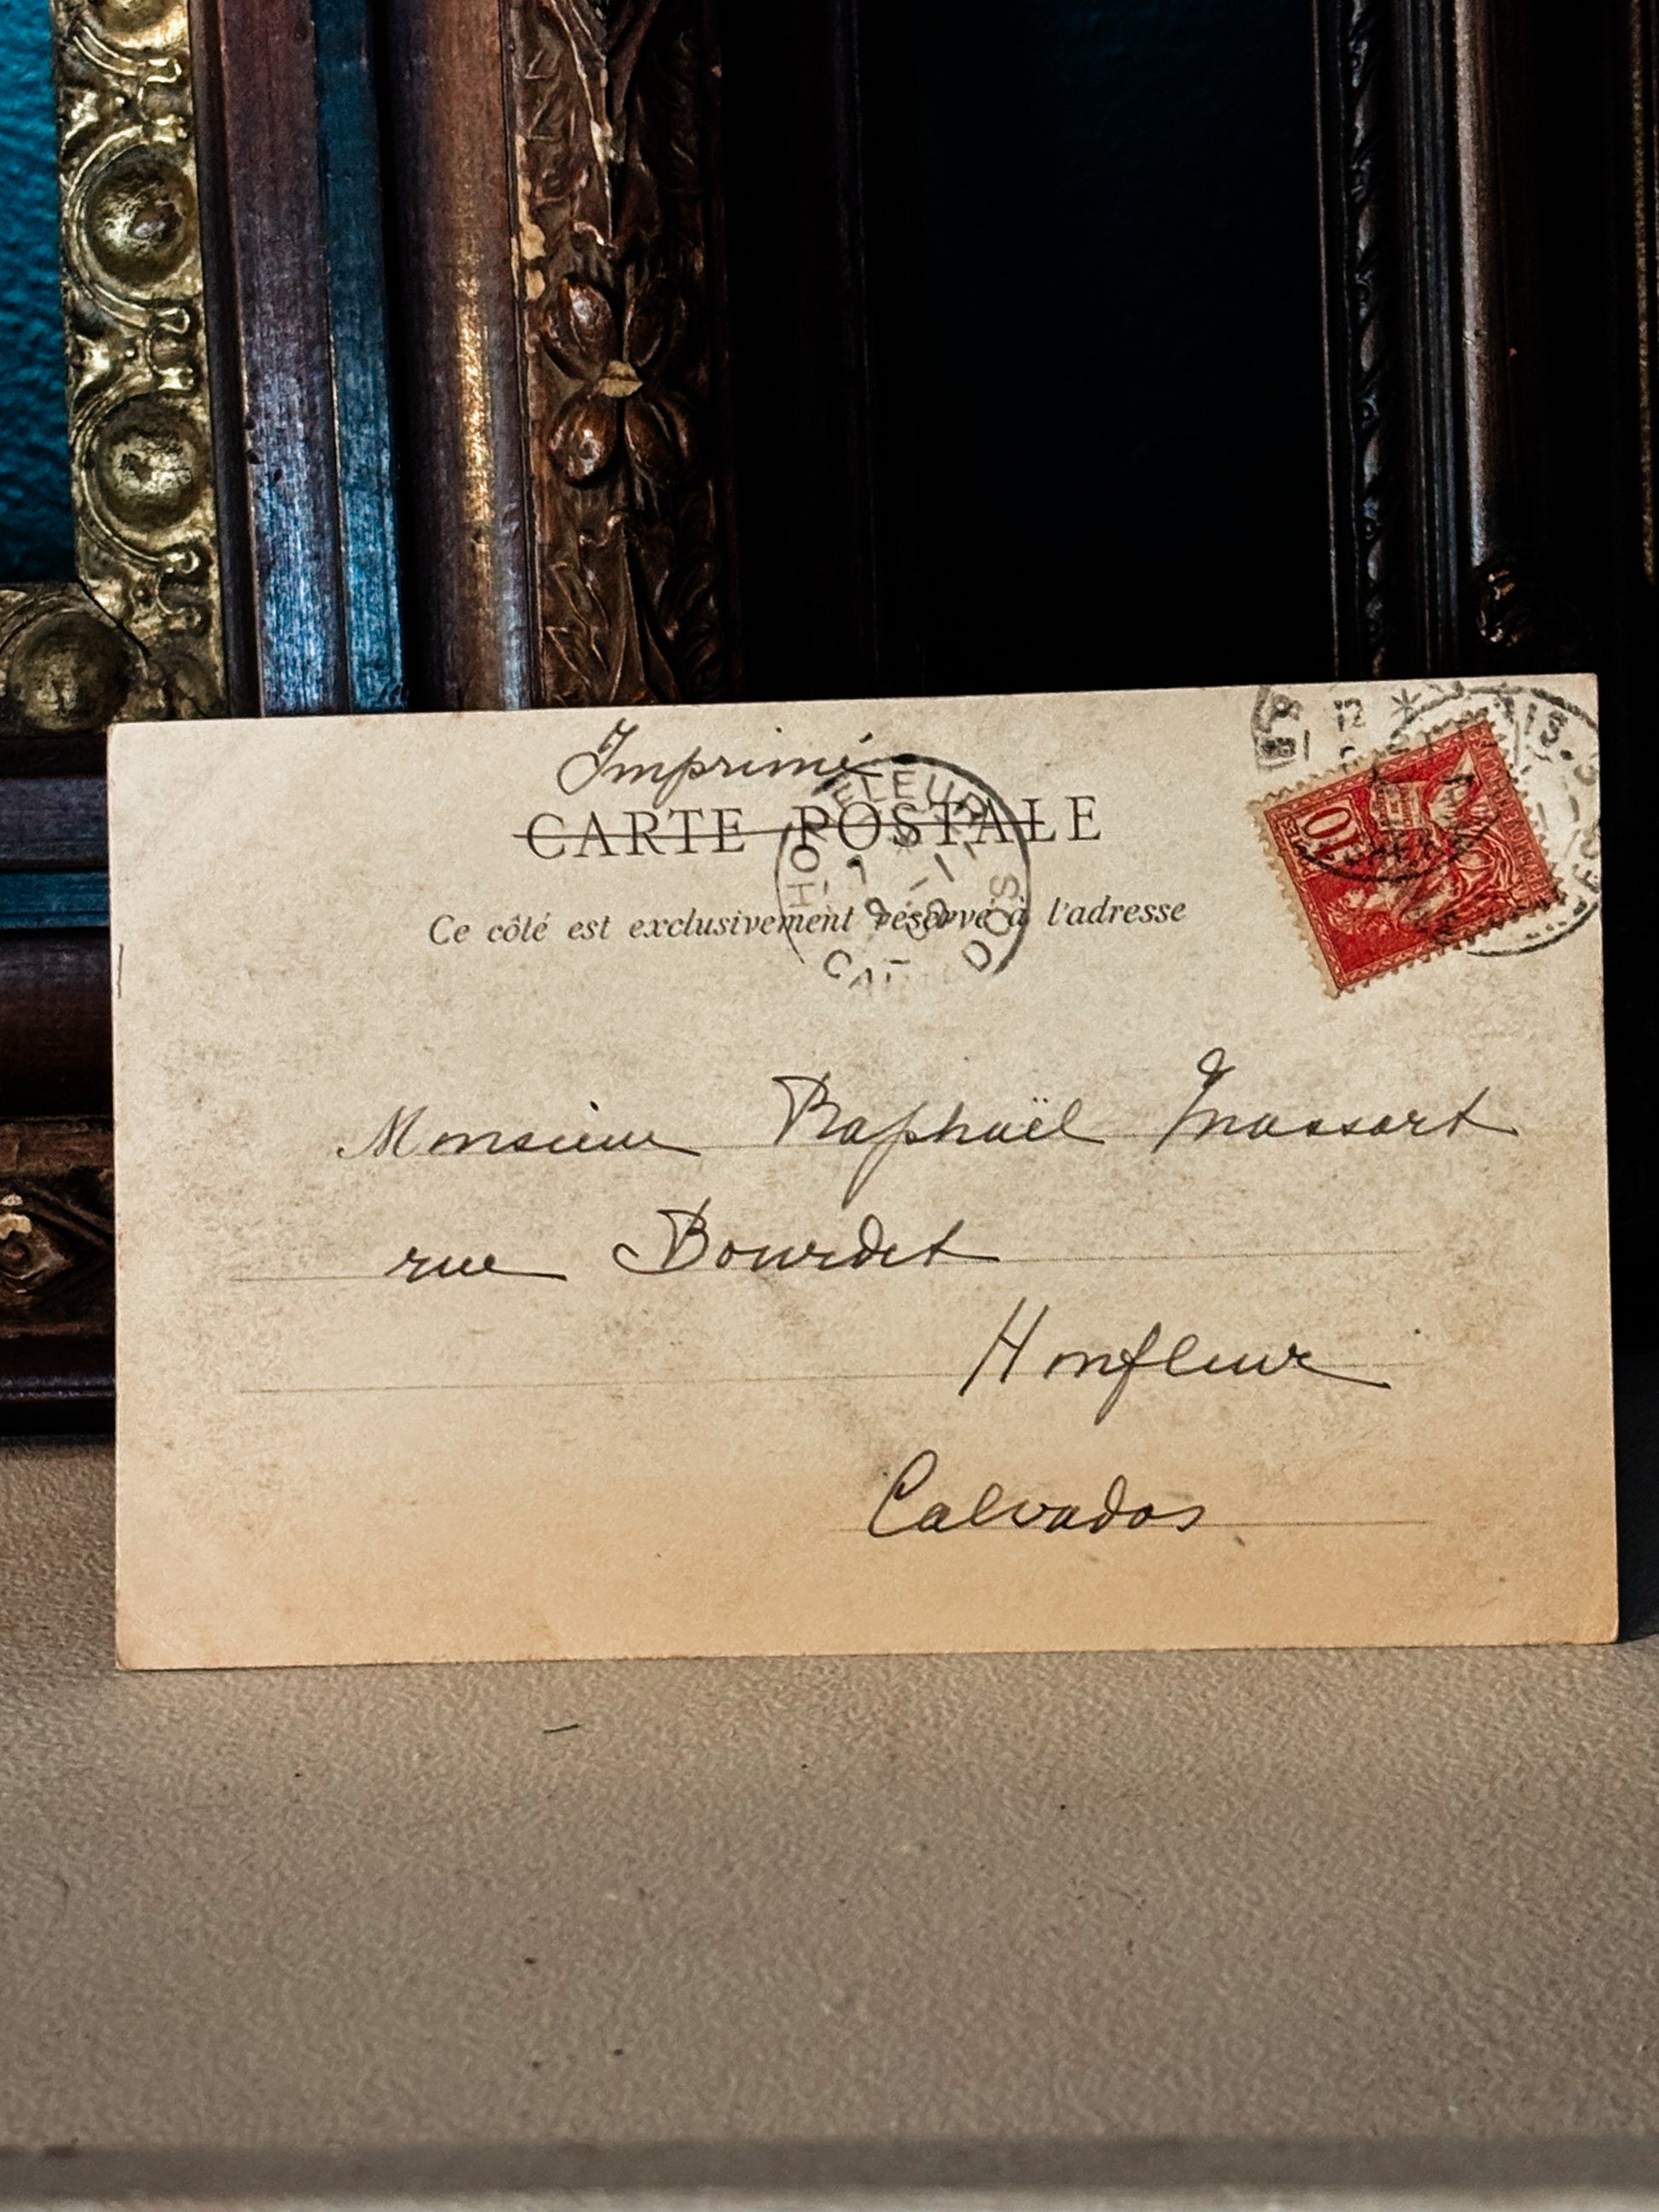 Imprimé
CARTE POSTALE
Ce côté est exclusivement réservé à l'adresse
HONFLEUR
CALVADOS
10
Monsieur Raphaël Massart
rue Bourdet
Honfleur
Calvados